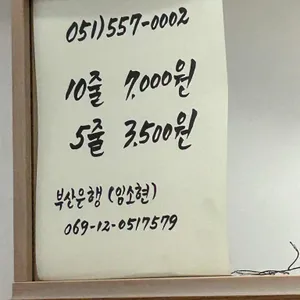 051)557-0002
10줄 7,000원
5줄 3,500원
부산은행 (임소현)
069-12-0517579